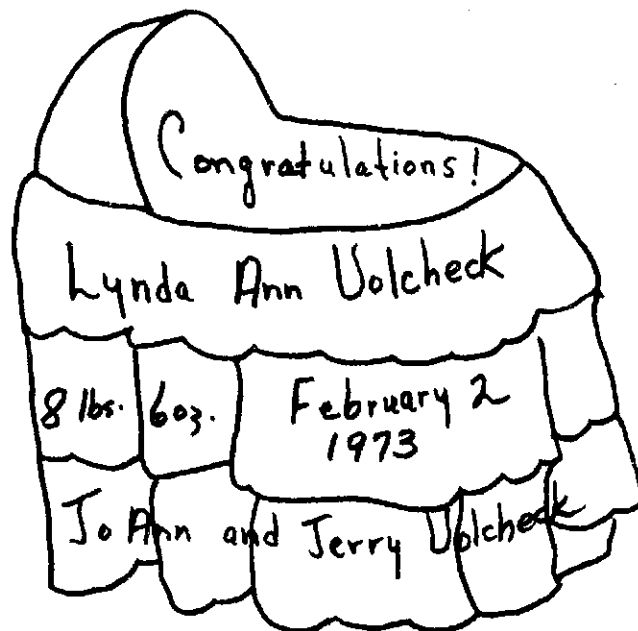 Congratulations!
Lynda Ann Volcheck
8 lbs. 6oz. February 2
1973
Jo Ann and Jerry Volcheck